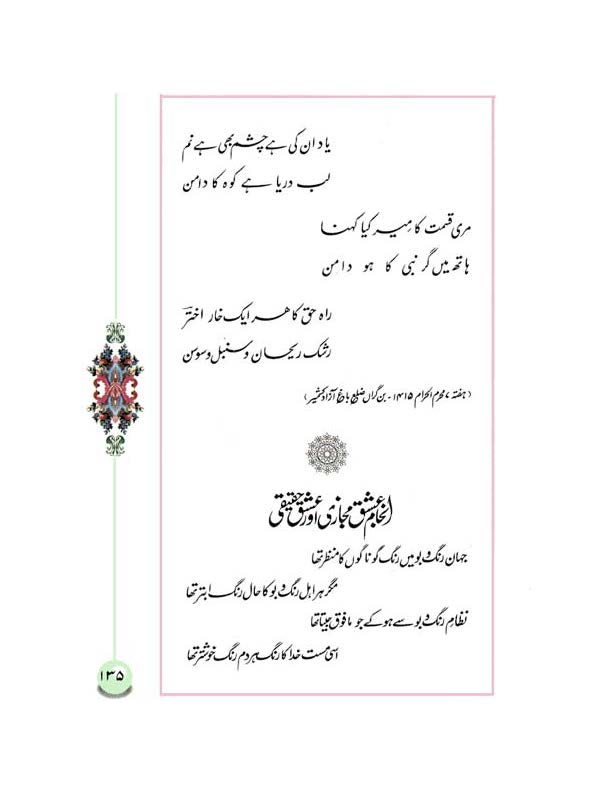 یاد ان کی ہے چشم بھی ہے نم
لب دریا ہے کوہ کا دامن
مری قسمت کا میر کیا کہنا
ہاتھ میں گر نبی کا ہو دامن
راہ حق کا ہر ایک خار اخترؔ
رشک ریحان و سنبل و سوسن
(ہفتہ ۷ محرم الحرام ۱۴۱۵ - بن گراں ضلع باغ آزاد کشمیر)
انجام عشق مجازی اور عشق حقیقی
جہان رنگ و بو میں رنگ گوناگوں کا منظر تھا
مگر ہر اہل رنگ و بو کا حال رنگ ابتر تھا
نظامِ رنگ و بو سے ہو کے جو مافوق جیتا تھا
اسی مست خدا کا رنگ ہر دم رنگ خوشتر تھا
۱۳۵